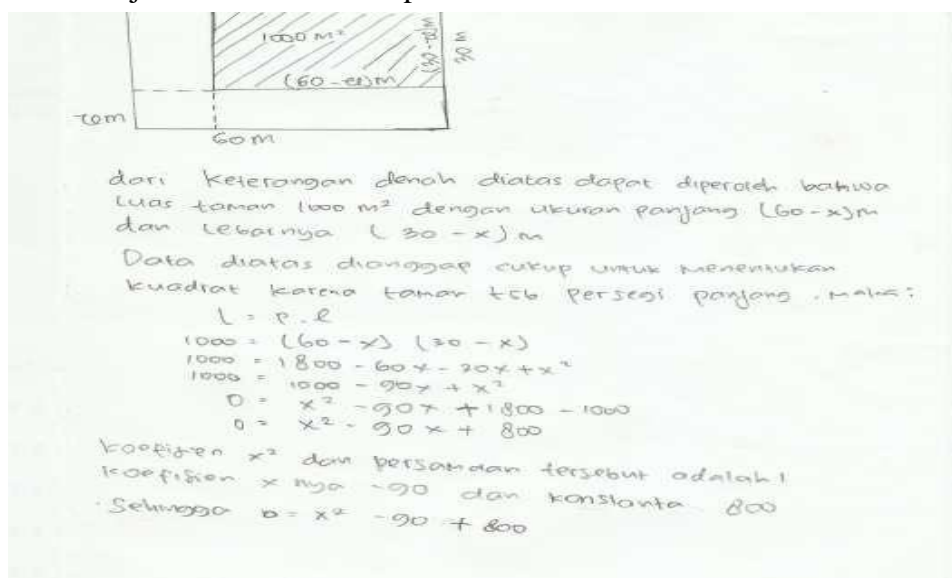 1000 M²
(30-x)
30 M
(60-x)m
60m
dari keterangan denah diatas dapat diperoleh bahwa
luas taman 1000 m² dengan ukuran panjang (60-x)m
dan lebarnya (30-x)m
Data diatas dianggap cukup untuk menentukan
kuadrat karena taman tsb persegi panjang. maka:
l = p.l
1000 = (60-x) (30-x)
1000 = 1800 - 60x - 30x + x²
1000 = 1000 - 90x + x²
0 = x² - 90x + 1800 - 1000
0 = x² - 90x + 800
koefisien x² dan persamaan tersebut adalah 1
koefisien x nya -90 dan konstanta 800
Sehingga 0 = x² - 90 + 800